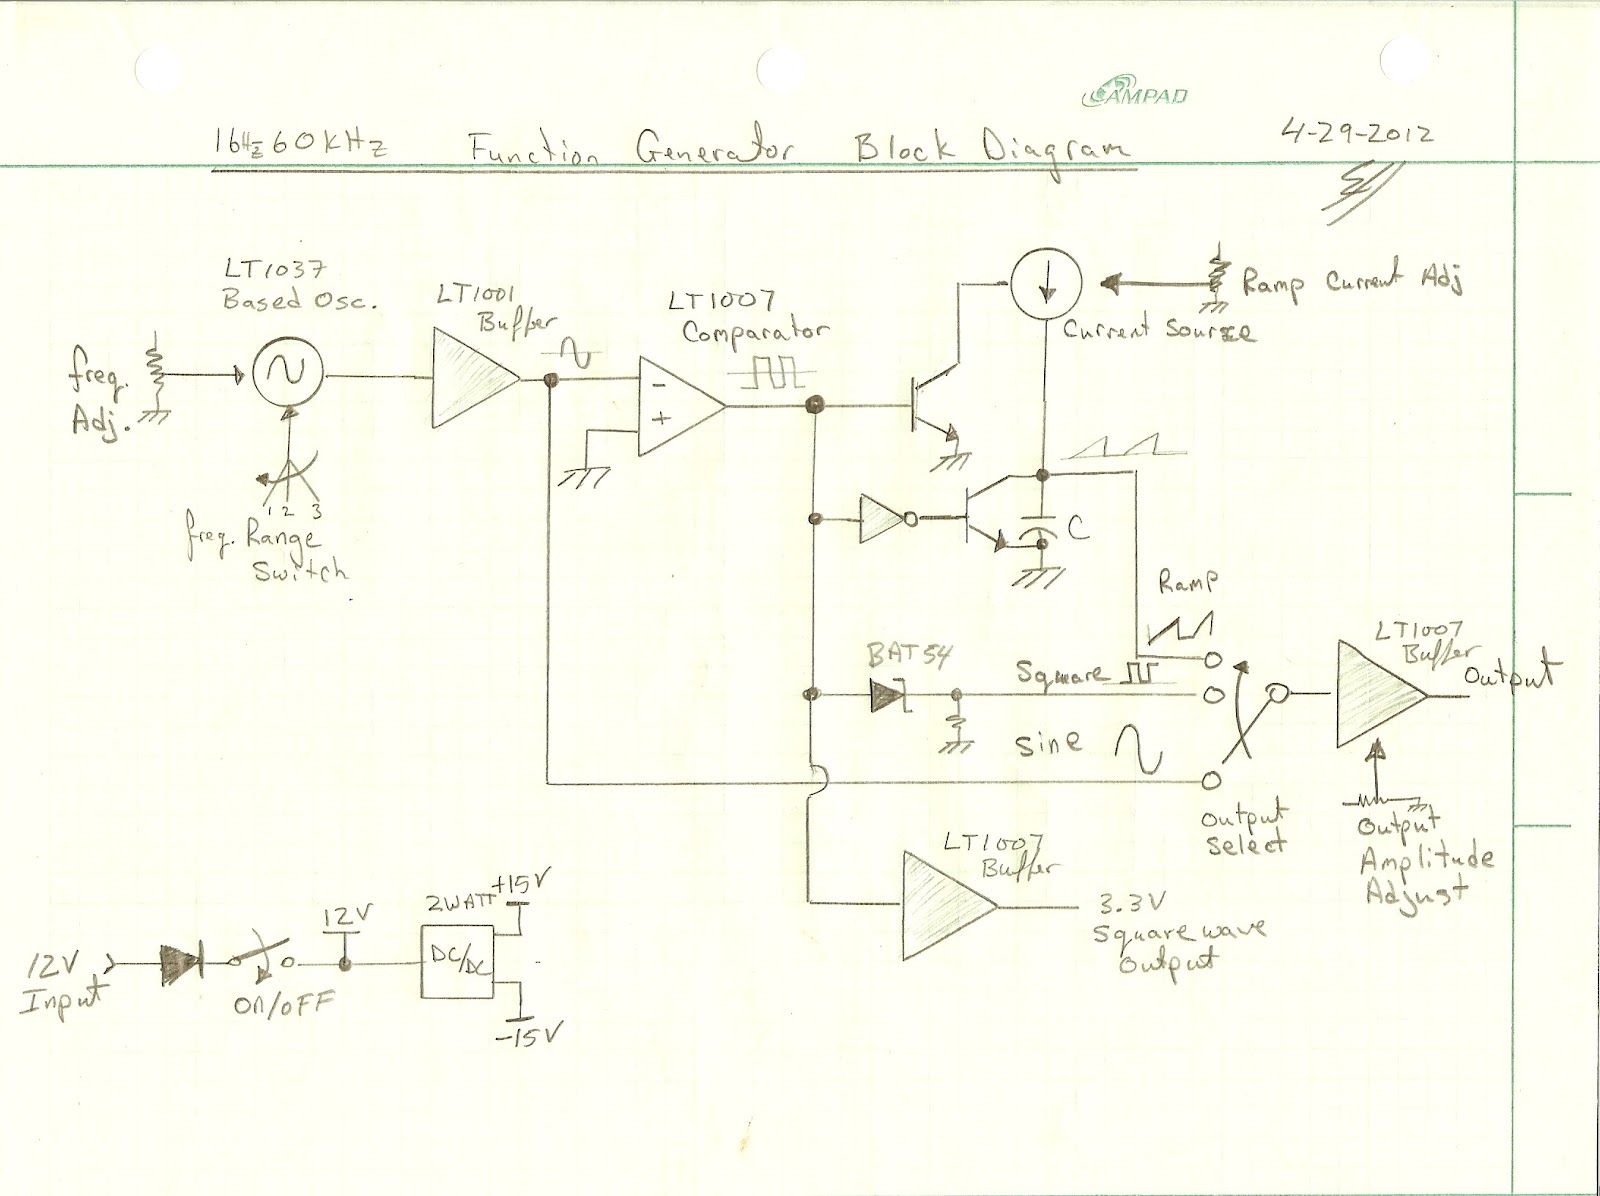 AMPAD
16Hz 60KHz Function Generator Block Diagram
4-29-2012
LT1037
Based Osc.
LT1001
Buffer
LT1007
Comparator
-
+
Current Source
Ramp Current Adj
freq.
Adj.
1 2 3
freq. Range
Switch
C
Ramp
BAT54
Square
Sine
Output
Select
LT1007
Buffer
Output
Output
Amplitude
Adjust
LT1007
Buffer
3.3V
Square wave
Output
12V
Input
ON/OFF
12V
2WATT
DC/DC
+15V
-15V